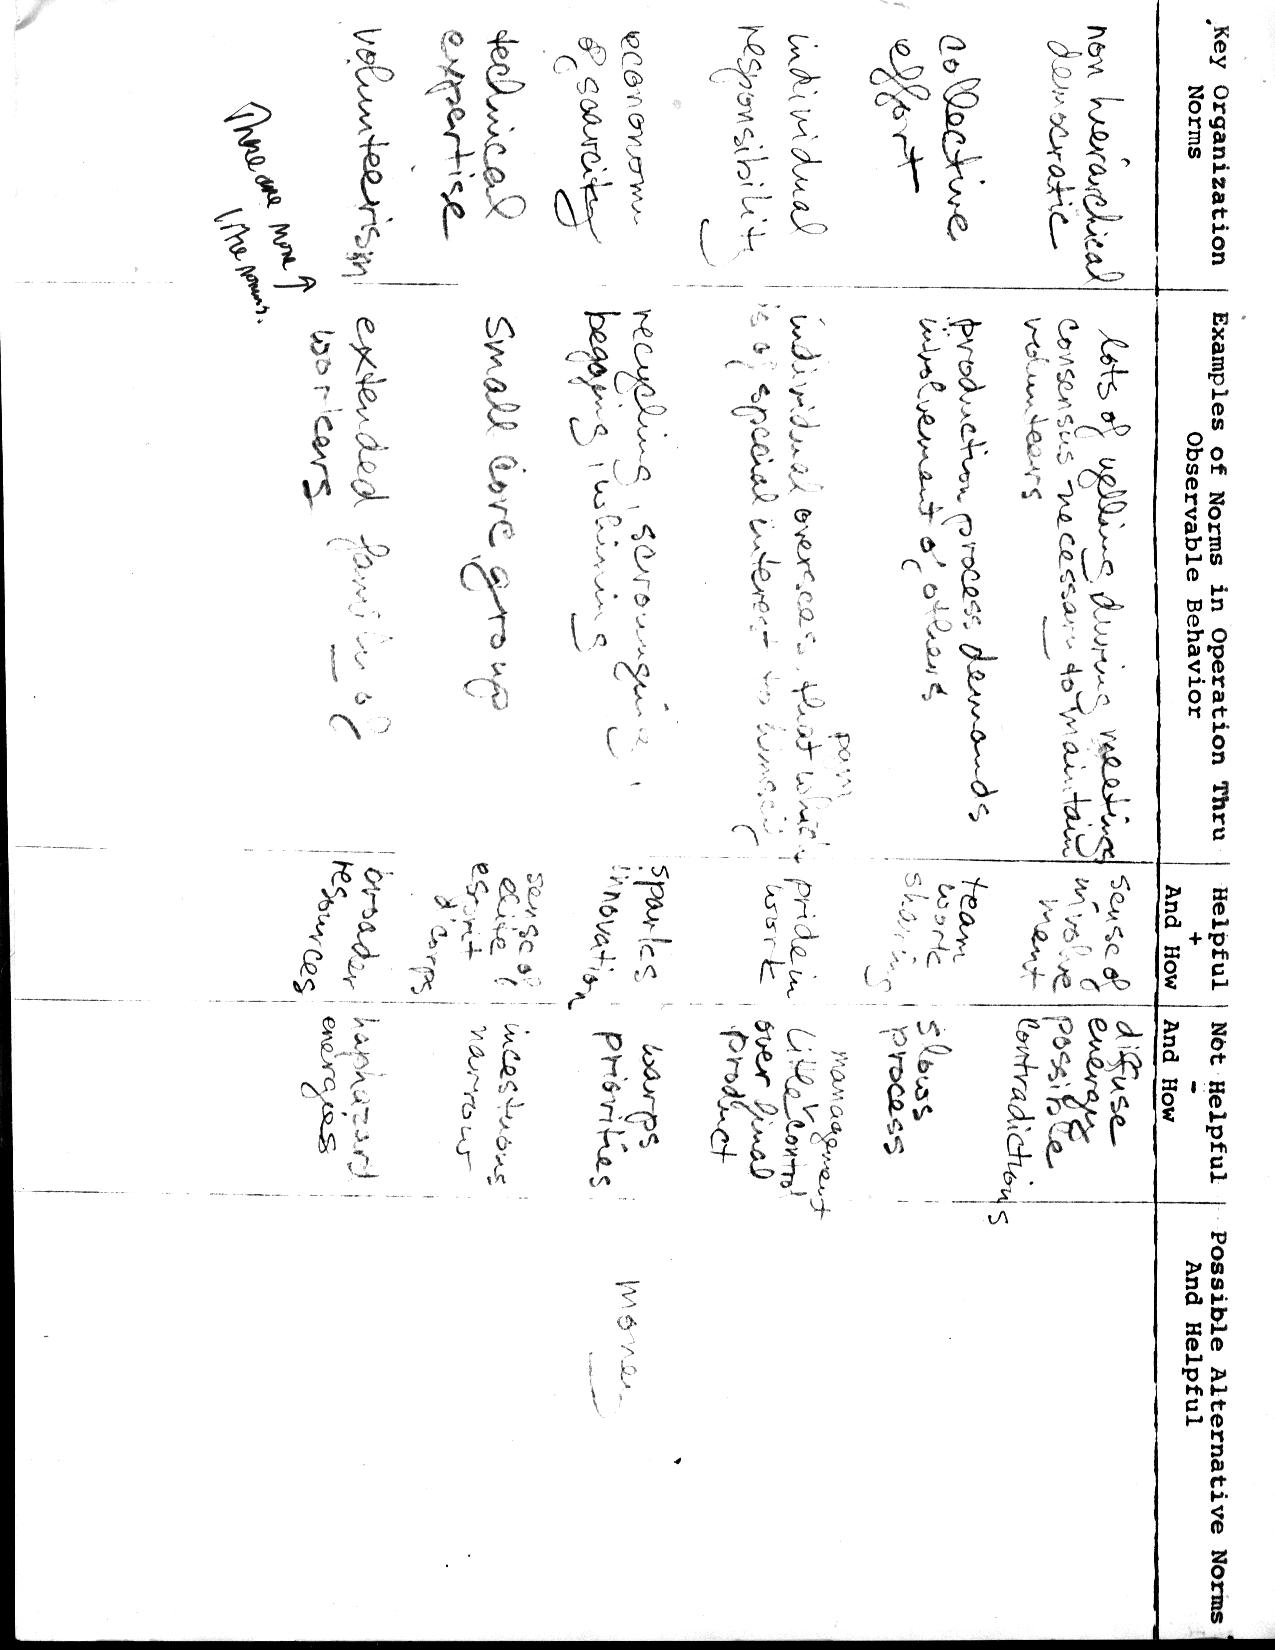 Key Organization
Norms
Examples of Norms in Operation Thru
Observable Behavior
Helpful
+
And How
Not Helpful
-
And How
Possible Alternative Norms
And Helpful
non hierarchical
democratic
lots of yelling during meetings
consensus necessary to maintain
volunteers
sense of
involve
ment
diffuse
energy
possible
contradictions
collective
effort
production process demands
involvement of others
team
work
sharing
slows
process
individual
responsibility
individual oversees that which
is of special interest to himself
pride in
work
management
little control
over final
product
economy
of scarcity
recycling, scrounging,
begging, whining
sparks
innovation
warps
priorities
money
technical
expertise
small core group
sense of
elite
esprit
d'corps
incestuous
narrow
volunteerism
extended family of
workers
broader
resources
haphazard
energies
These are more
like norms.